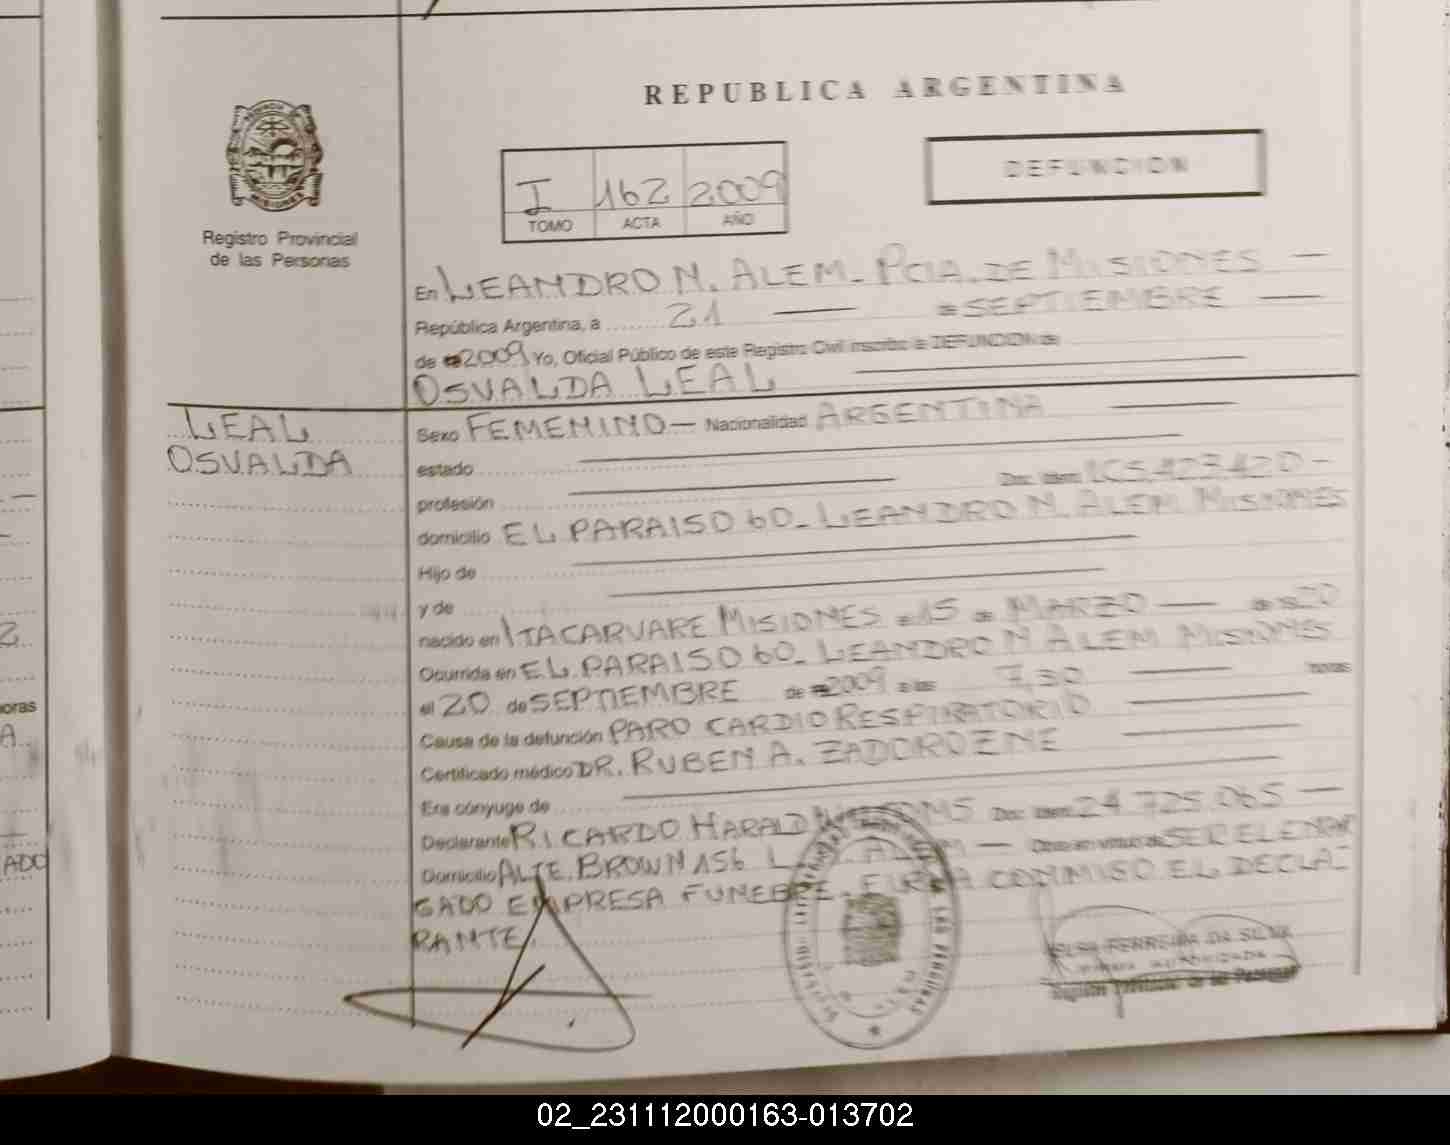 REPUBLICA ARGENTINA
DEFUNCION
I 162 2009
TOMO ACTA AÑO
Registro Provincial
de las Personas
En LEANDRO N. ALEM - PCIA. DE MISIONES —
República Argentina, a 21 — de SEPTIEMBRE —
de 2009 Yo, Oficial Público de este Registro Civil inscribo la DEFUNCION de
OSVALDA LEAL
LEAL
OSVALDA
Sexo FEMENINO — Nacionalidad ARGENTINA
estado
profesión Doc. Ident. LC5.423.420 -
domicilio EL PARAISO 60 - LEANDRO N. ALEM MISIONES
Hijo de
y de
nacido en ITACARUARE MISIONES el 15 de MARZO —
Ocurrida en EL PARAISO 60 - LEANDRO N ALEM MISIONES
el 20 de SEPTIEMBRE de 2009 a las 7,30 horas
Causa de la defunción PARO CARDIO RESPIRATORIO
Certificado médico DR. RUBEN A. ZADOROZNE
Era cónyuge de
Declarante RICARDO HARALD Doc. Ident. 24.725.065 —
Domicilio ALTE. BROWN 156 L. ALEM — Obra en virtud de SER EL ENCAR
GADO EMPRESA FUNEBRE. FIRMA CONMIGO EL DECLA-
RANTE.
ELSA FERREIRA DA SILVA
02_231112000163-013702